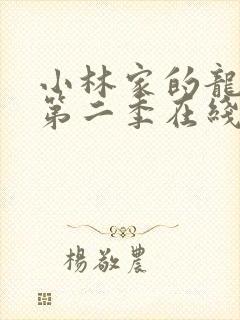 小林家的龍
第二季在綫
楊敬農